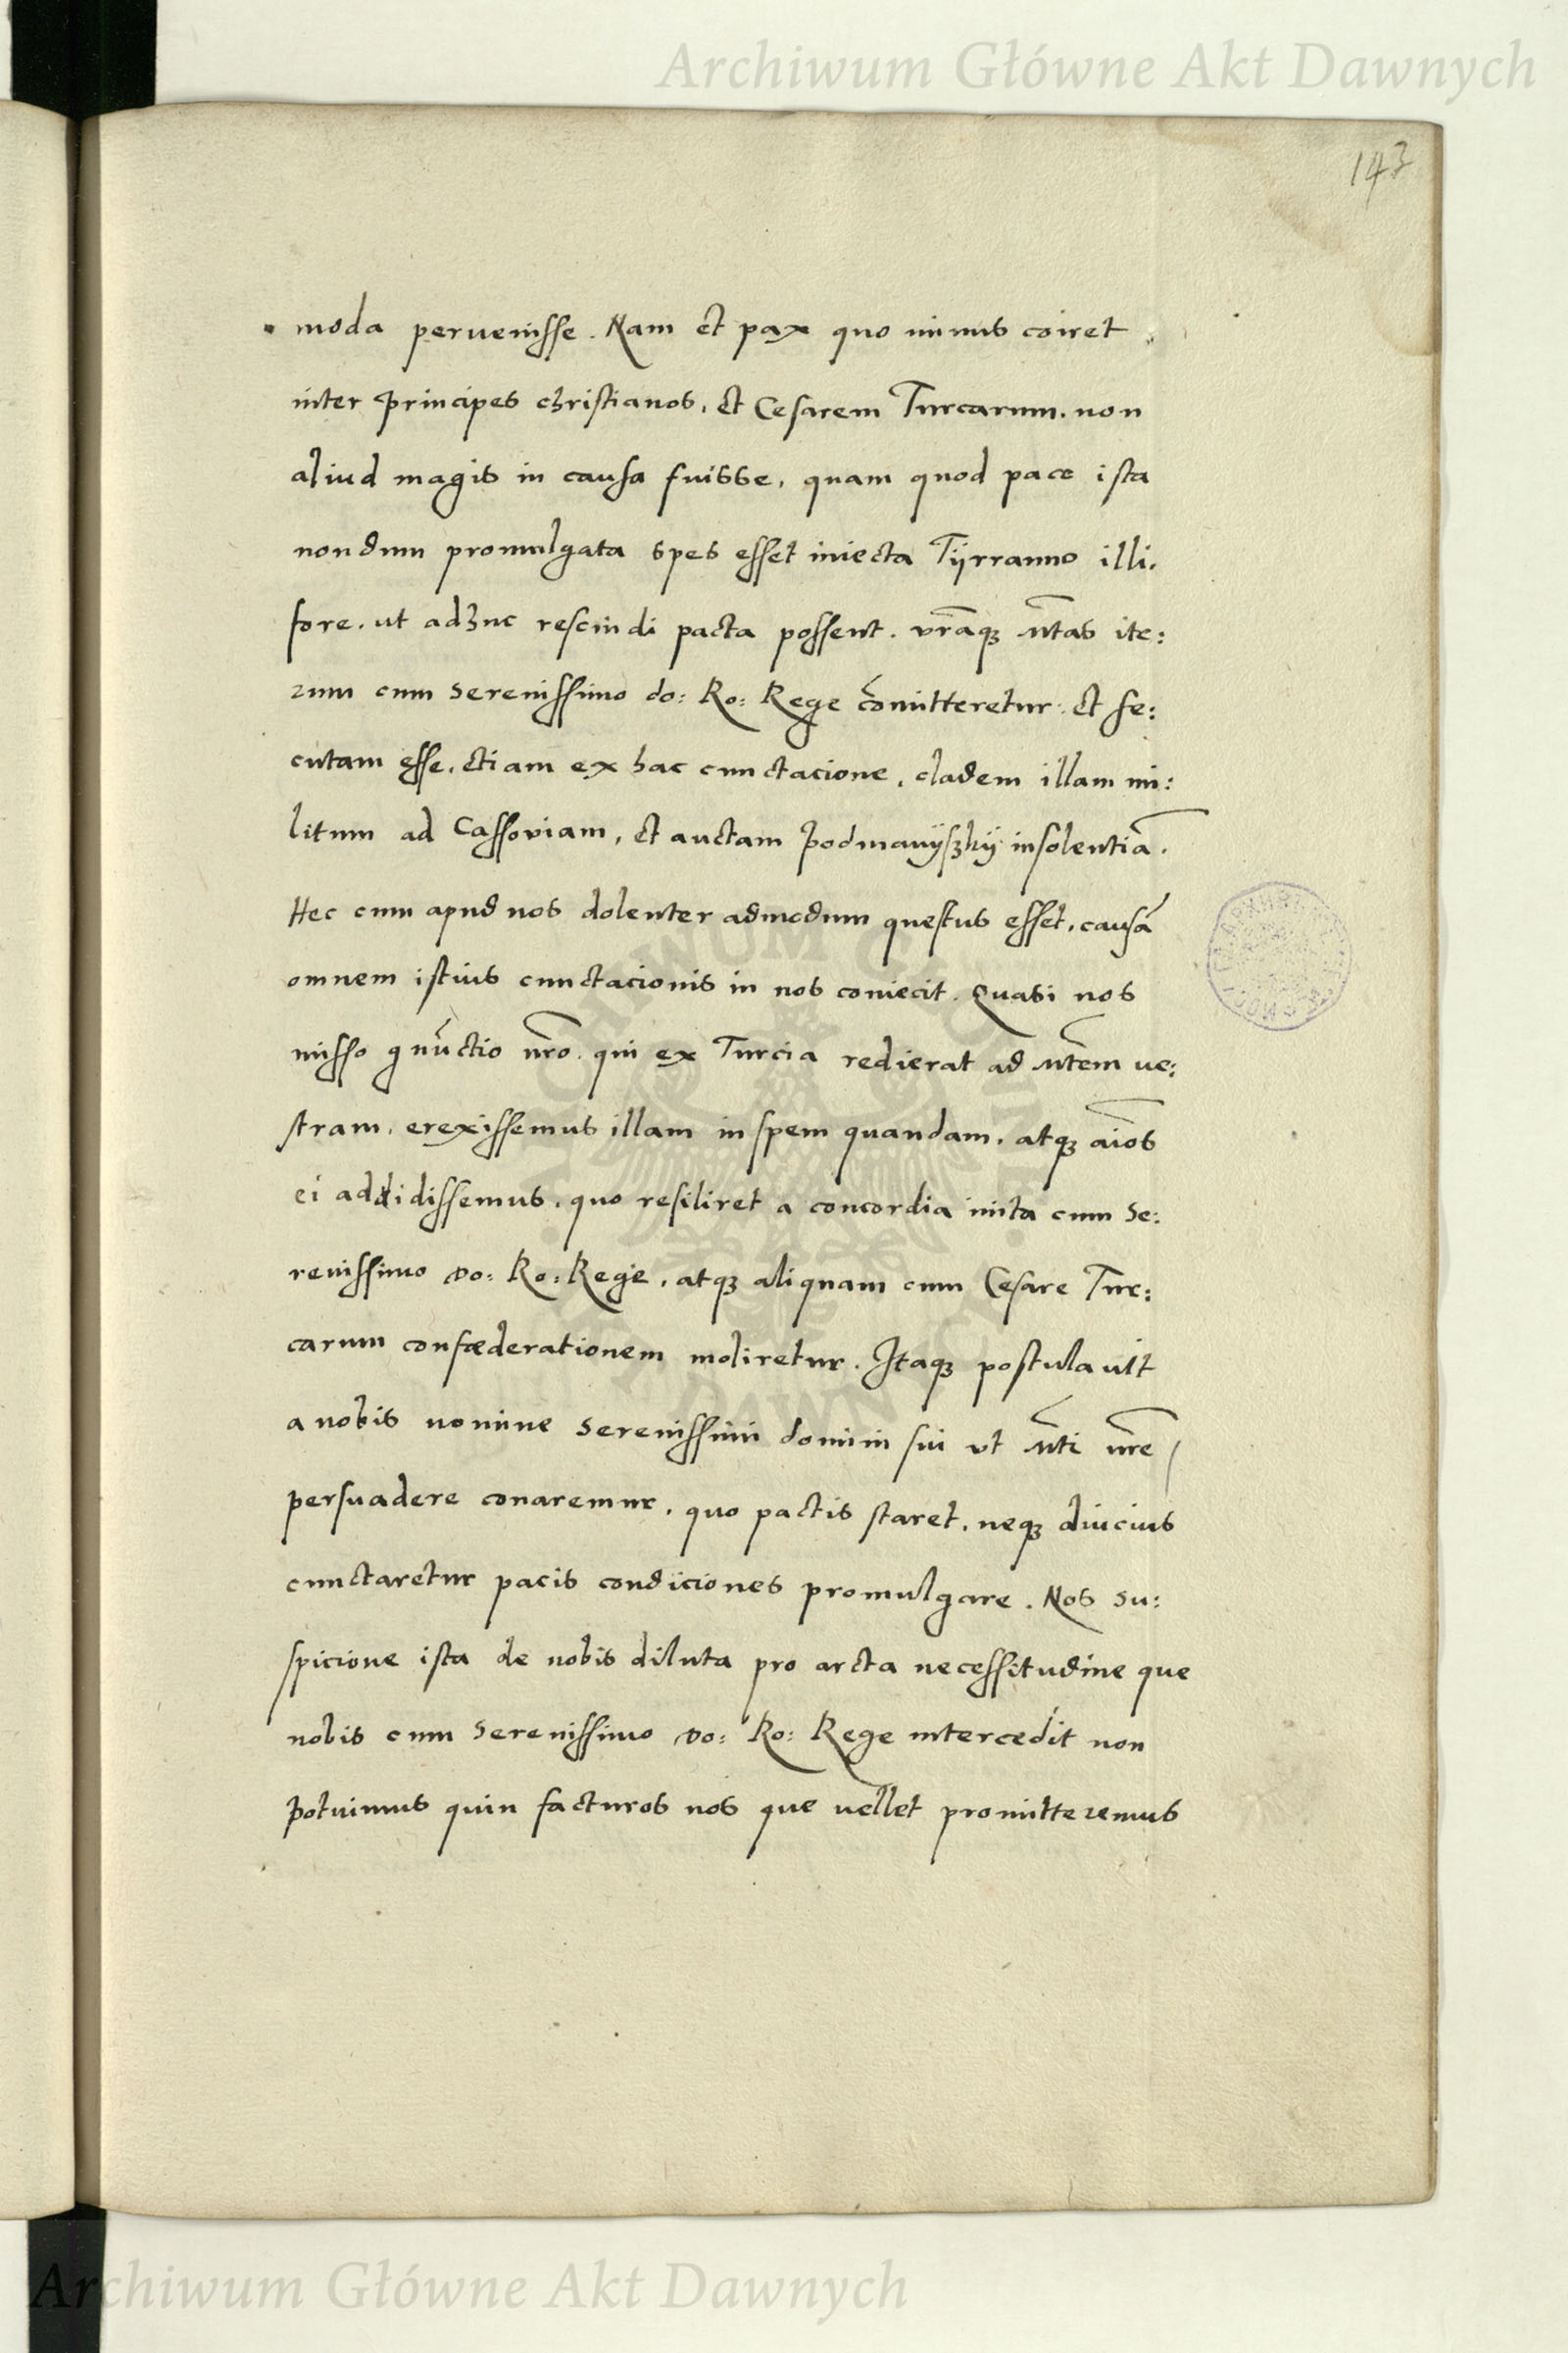 Archiwum Główne Akt Dawnych
143
moda peruenisse. Nam et pax quo minus coiret
inter principes christianos, et Cesarem Turcarum. non
aliud magis in causa fuisse, quam quod pace ista
nondum promulgata spes esset iniecta Tÿrranno illi.
fore. ut adhuc rescindi pacta possent. vraqꝫ mtas ite:
rum cum serenissimo do: Ro: Rege comitteretur. et se:
cutam esse, etiam ex hac cunctacione, cladem illam mi:
litum ad Cassoviam, et auctam Podmanÿszkÿ insolentiā.
Hec cum apud nos dolenter admodum questus esset, causā
omnem istius cunctacionis in nos coniecit. Quasi nos
misso nūctio nro. qui ex Turcia redierat ad mtem ue:
stram, erexissemus illam in spem quandam, atqꝫ aīos
ei addidissemus, quo resiliret a concordia inita cum se:
renissimo do: Ro: Rege, atqꝫ aliquam cum Cesare Tur:
carum confœderationem moliretur. Itaqꝫ postulauit
a nobis nomine serenissimi domini sui vt mti vre
persuadere conaremur, quo pactis staret, neqꝫ diucius
cunctaretur pacis condiciones promulgare. Nos su:
spicione ista de nobis diluta pro arcta necessitudine que
nobis cum serenissimo do: Ro: Rege intercedit non
potuimus quin facturos nos que vellet promitteremus
Archiwum Główne Akt Dawnych